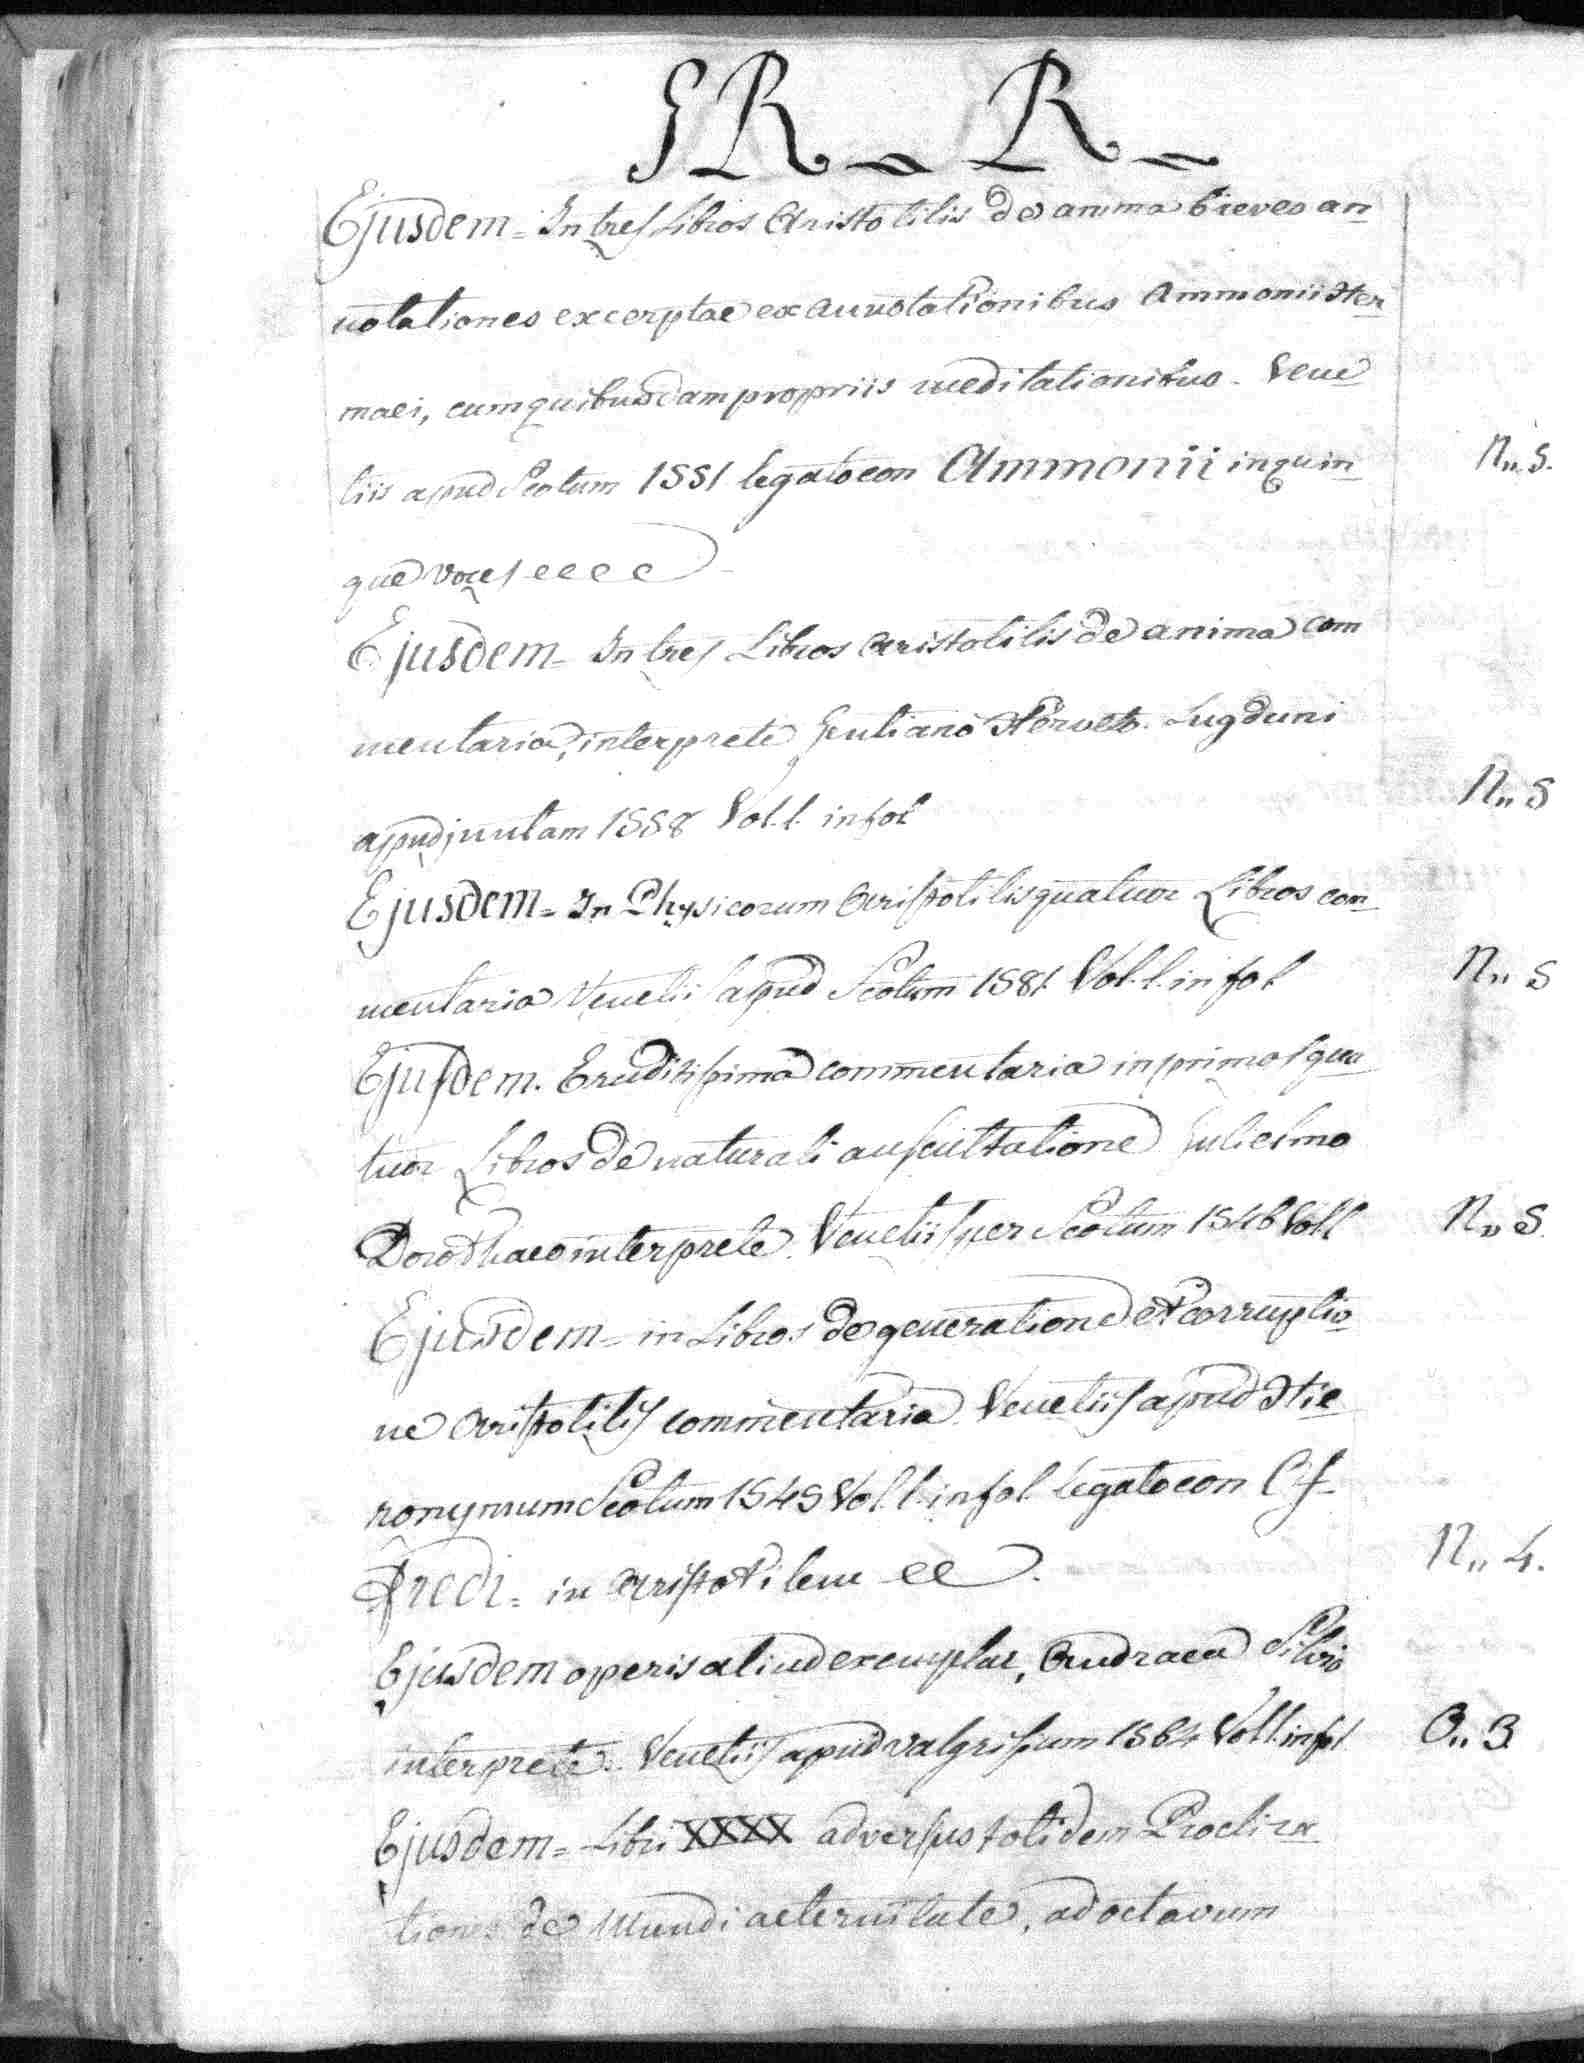 GR = R =
Ejusdem = In tres Libros Aristotilis de anima breves an
notationes excerptae ex annotationibus Ammonii Her
maei, cum quibusdam propriis meditationibus. Vene
tiis apud Scotum 1551 legato con Ammonii in quin N,, 5.
que voces e e e e
Ejusdem = In tres Libros Aristotilis de anima com
mentaria, interprete Gentiano Herveto. Lugduni
apud juntam 1558 Vol. 1. in fol N,, 5
Ejusdem = In Physicorum Aristotilis quatuor Libros com
mentaria Venetiis apud Scotum 1581 Vol. 1. in fol N,, 5
Ejusdem. Eruditissima commentaria in primos qua
tuor Libros de naturali auscultatione Gulielmo
Dorothaeo interprete. Venetiis per Scotum 1546 Vol. 1 N,, 5.
Ejusdem = in Libros de generatione et corruptio
ne Aristotilis commentaria Venetiis apud Hie
ronymum Scotum 1549 Vol. 1. in fol. legato con
in Aristotilem e e. N,, 4.
Ejusdem operis aliud exemplar, Andraea Silvio
interprete. Venetiis apud valgrisium 1564 Vol 1. in fol O,, 3
Ejusdem = Libri adversus totidem Procli ra
tiones de Mundi aeternitate, ad octavum